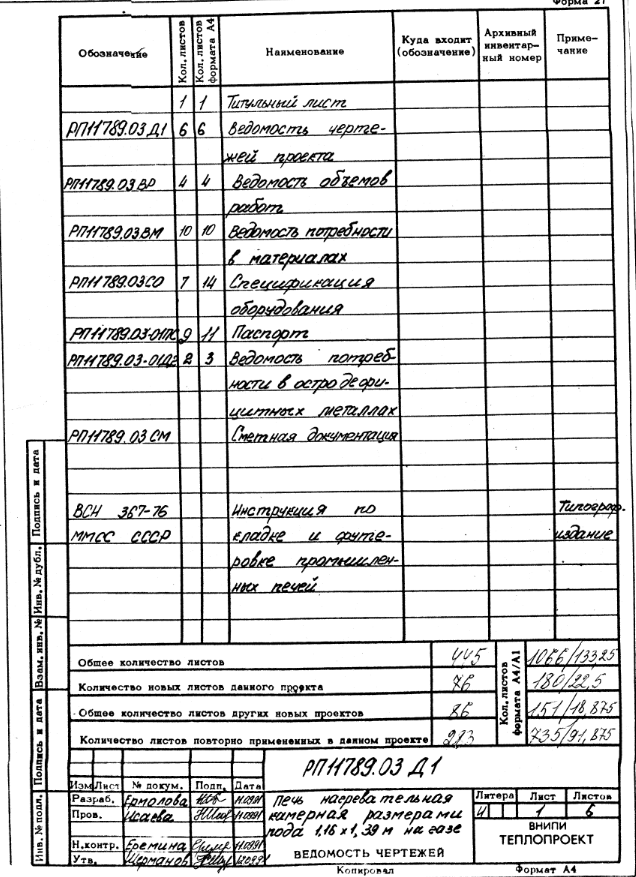 Форма 21
Обозначение Кол. листов Кол. листов формата А4 Наименование Куда входит (обозначение) Архивный инвентарный номер Примечание
1 1 Титульный лист
РП11789.03 Д1 6 6 Ведомость черте-
жей проекта
РП11789.03 ВР 4 4 Ведомость объемов
работ
РП11789.03 ВМ 10 10 Ведомость потребности
в материалах
РП11789.03 СО 7 14 Спецификация
оборудования
РП11789.03-01ПС 9 11 Паспорт
РП11789.03-01Д2 2 3 Ведомость потреб-
ности в остродефи-
цитных металлах
РП11789.03 СМ Сметная документация
ВСН 367-76 Инструкция по Типограф.
ММСС СССР кладке и футе- издание
ровке промышлен-
ных печей
Общее количество листов 445 1066/133,25
Количество новых листов данного проекта 76 180/22,5
Общее количество листов других новых проектов 86 151/18,875
Количество листов повторно примененных в данном проекте 283 735/91,875
Кол. листов формата А4/А1
РП11789.03 Д1
Изм Лист № докум. Подп. Дата
Разраб. Ермолова
Пров. Исаева
Н.контр. Еремина
Утв.
Печь нагревательная
камерная размерами
пода 1,16 х 1,39 м на газе
ВЕДОМОСТЬ ЧЕРТЕЖЕЙ
Литера Лист Листов
И 1 6
ВНИПИ
ТЕПЛОПРОЕКТ
Копировал Формат А4
Инв. № подл. Подпись и дата Взам. инв. № Инв. № дубл. Подпись и дата